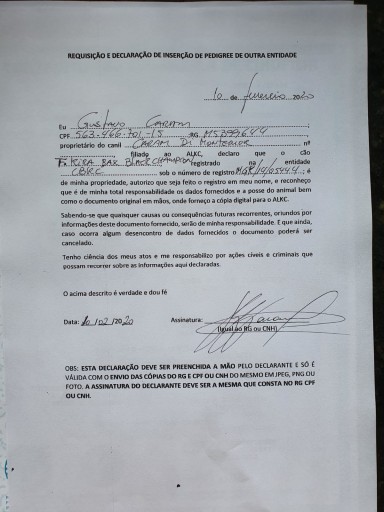 REQUISIÇÃO E DECLARAÇÃO DE INSERÇÃO DE PEDIGREE DE OUTRA ENTIDADE
10 de fevereiro 2020
Eu Gustavo Caram
CPF 563-466-701-15 RG M5399644
proprietário do canil CARAM Di MONTEZUOR nº
, filiado ao ALKC, declaro que o cão
KIRA BAR BLACK CHAMPION registrado na entidade
CBRC sob o número de registro MGR/14/05444.; é
de minha propriedade, autorizo que seja feito o registro em meu nome, e reconheço
que é de minha total responsabilidade os dados fornecidos e a posse do animal bem
como o documento original em mãos, onde forneço a cópia digital para o ALKC.
Sabendo-se que quaisquer causas ou consequências futuras recorrentes, oriundos por
informações deste documento fornecido, serão de minha responsabilidade. E que ainda,
caso ocorra algum desencontro de dados fornecidos o documento poderá ser
cancelado.
Tenho ciência dos meus atos e me responsabilizo por ações cíveis e criminais que
possam recorrer sobre as informações aqui declaradas.
O acima descrito é verdade e dou fé
Data: 10/02/2020 Assinatura:
(Igual ao RG ou CNH)
OBS: ESTA DECLARAÇÃO DEVE SER PREENCHIDA A MÃO PELO DECLARANTE E SÓ É
VÁLIDA COM O ENVIO DAS CÓPIAS DO RG E CPF OU CNH DO MESMO EM JPEG, PNG OU
FOTO. A ASSINATURA DO DECLARANTE DEVE SER A MESMA QUE CONSTA NO RG CPF
OU CNH.